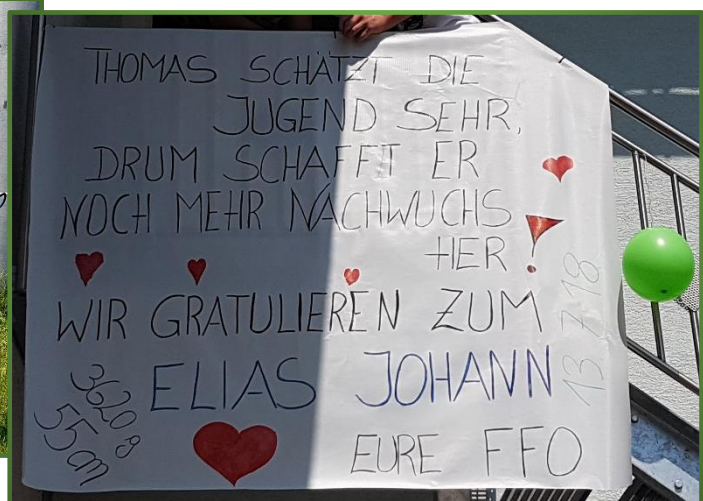 THOMAS SCHÄTZT DIE
JUGEND SEHR,
DRUM SCHAFFT ER
NOCH MEHR NACHWUCHS
HER!
WIR GRATULIEREN ZUM
ELIAS JOHANN
13.7.18
3620 g
55 cm
EURE FFO